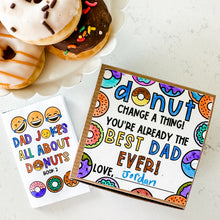 DAD JOKES
ALL ABOUT
DONUTS
BOOK 2
donut
CHANGE A THING!
YOU'RE ALREADY THE
BEST DAD
EVER!
LOVE,
Jordan